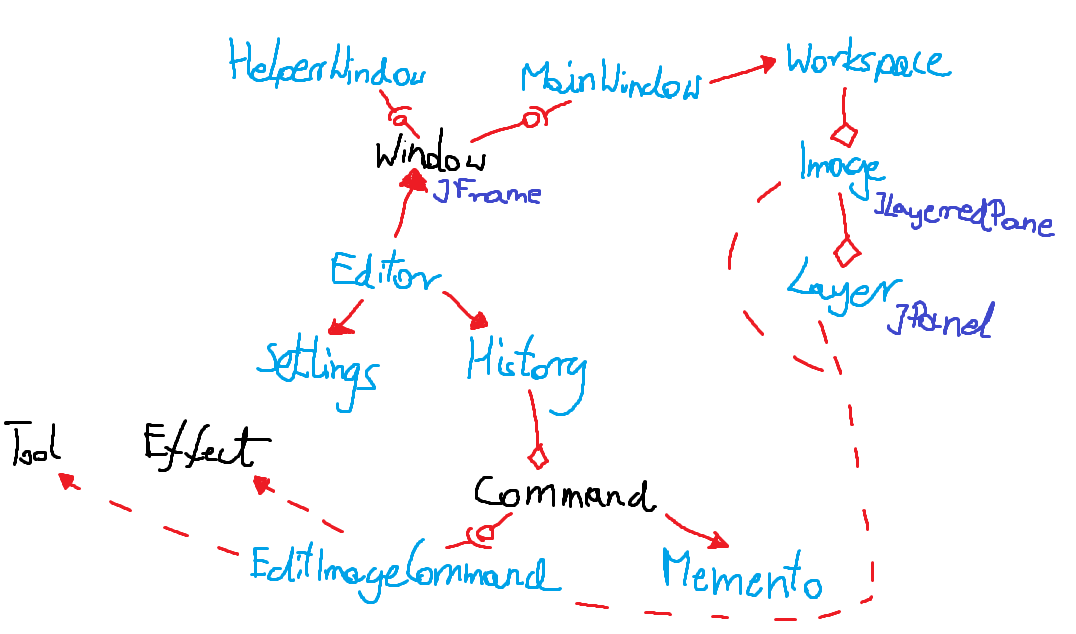 HelperWindow
MainWindow
Workspace
Window
JFrame
Image
JLayeredPane
Editor
Layer
JPanel
Settings
History
Tool
Effect
Command
EditImageCommand
Memento